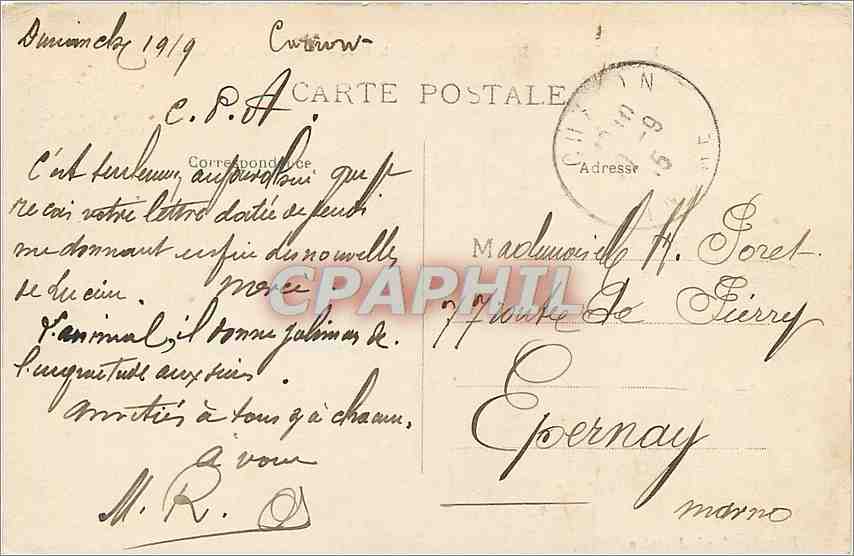 Dimanche 19/9
C. P. A.
CARTE POSTALE
Correspondance
C'est seulement aujourd'hui que je
reçois votre lettre datée de jeudi
me donnant enfin des nouvelles
de Lucien. Merci.
L'animal, il donne jolimas de
l'inquietude aux siens.
Amitiés à tous & à chacun,
à vous
M. R.
Adresse
Mademoiselle H. Poret
77 route de Pierry
Epernay
Marne
CPAPHIL